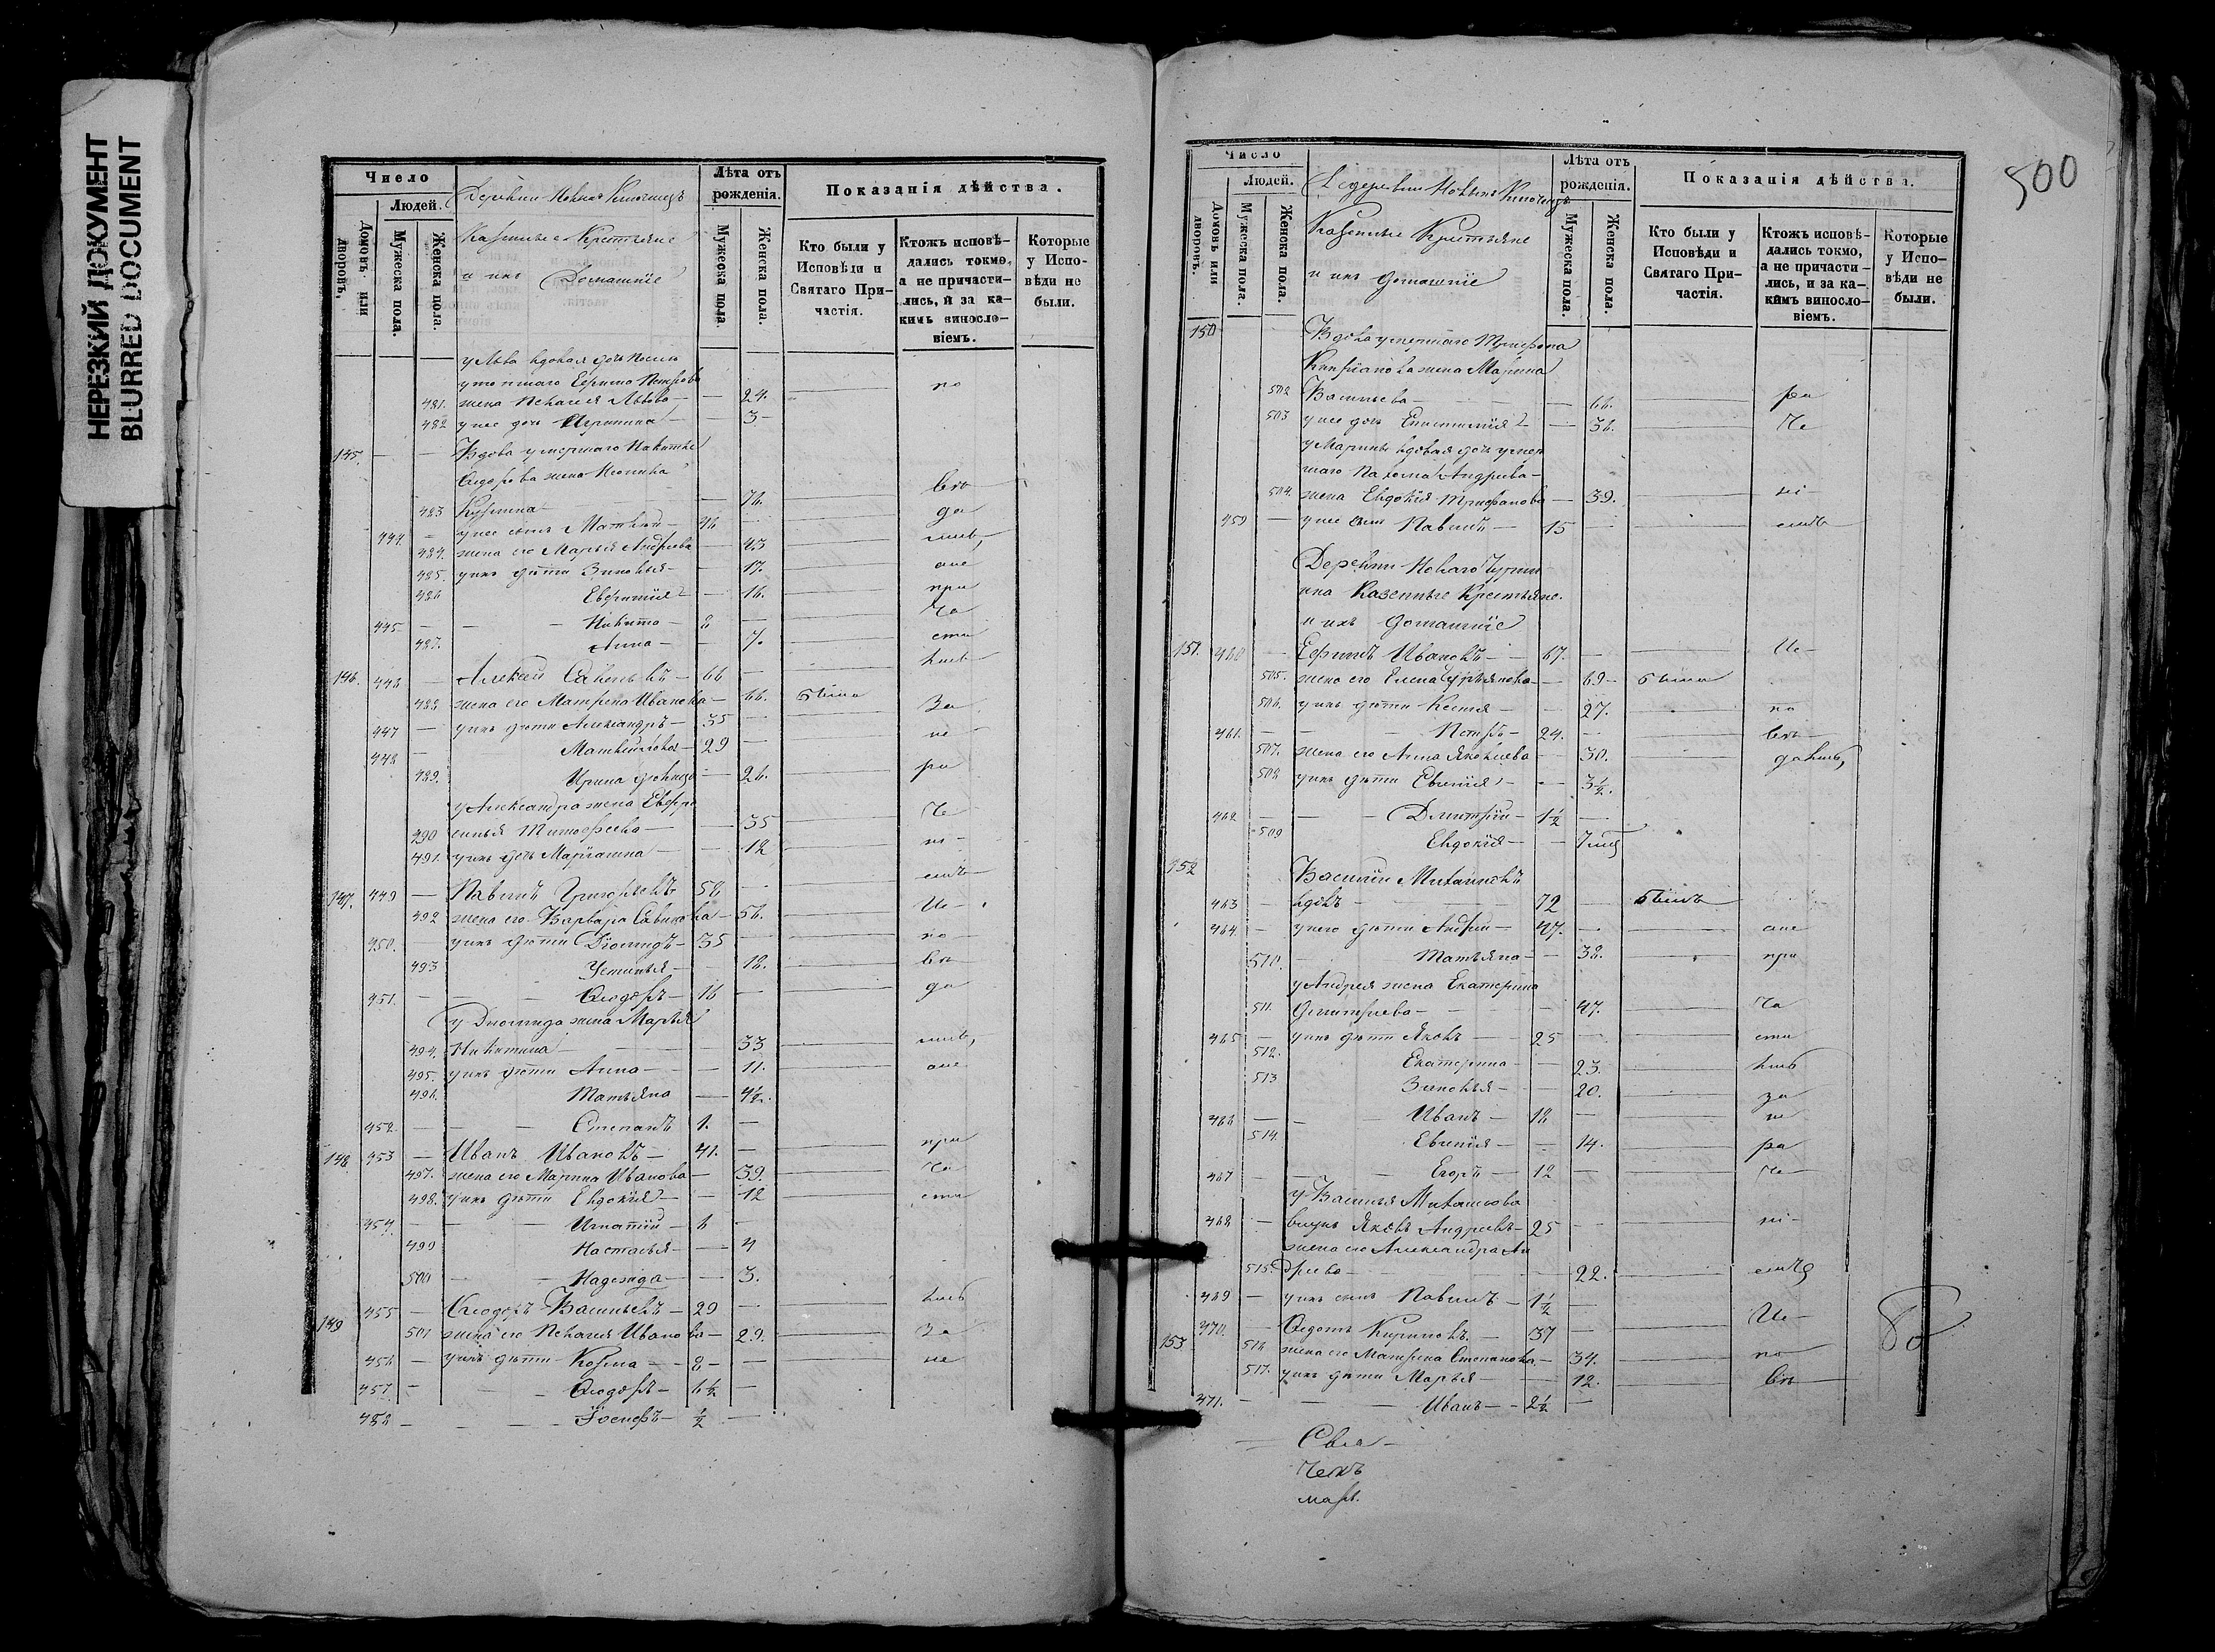 НЕРЕЗКИЙ ДОКУМЕНТ
BLURRED DOCUMENT
Число
Людей.
Домовъ, или дворовъ.
Мужеска пола.
Женска пола.
Деревни
Казенные Крестьяне
и ихъ Домашнiе
Лѣта отъ рожденія.
Мужеска пола
Женска пола.
Показанія дѣйства.
Кто были у Исповѣди и Святаго Причастія.
Ктожъ исповѣдались токмо, а не причастились, и за какимъ винословіемъ.
Которые у Исповѣди не были.
у Льва вдовая дочь
Петрова
481. жена Пелагея Львова — 24. по
482 у нее дочь — 3
145. Вдова умершаго Никиты
Ѳедорова жена
483 Кузмина — 76. вѣ
444. у нее сынъ Матвѣй — 46 да
484. жена его Марья Андреева — 43
485. у ихъ дѣти Зиновья — 17. ане
486 — 16. при
445 Никита — 8 ча
487. Анна — 7. сти
146. 446 Алексей Савельевъ — 66
488 жена его Матрена Иванова — 66. были за
447 у ихъ дѣти Александръ — 35 не
448 — 29
489. Ирина — 26. ра
у Александра жена Евфро
490 синья Тимофеева — 35 че
491. у ихъ дочь Марiанна — 12 нi
147. 449 Павелъ Григорьевъ 58 емъ
492 жена его Варвара — 56. Ис
450. у ихъ дѣти Дiомидъ — 35 по
493 Устинья — 18. вѣ
451. Ѳедоръ — 16 да
у Диомида жена Марья
494. Никитина — 33
495. у ихъ дѣти Анна — 11. ане
496. Татьяна — 4½.
452 Степанъ 1.
148 453 Иванъ Ивановъ — 41. при
497. жена его Марина Иванова — 39. ча
498. у ихъ дѣти Евдокiя — 12 сти
454. Игнатiй — 6
499 Настасья — 4
500 Надежда — 3.
149 455 Ѳедоръ Васильевъ — 29
501 жена его Пелагея Иванова — 29. За
456 у ихъ дѣти Козма — 8 не
457 Ѳедоръ — 6½
458 Iосифъ — ½
500
Число
Людей.
Домовъ или дворовъ.
Мужеска пола.
Женска пола.
Казенные Крестьяне
и ихъ домашнiе
Лѣта отъ рожденія.
Мужеска пола.
Женска пола.
Показанія дѣйства.
Кто были у Исповѣди и Святаго Причастія.
Ктожъ исповѣдались токмо, а не причастились, и за какимъ винословіемъ.
Которые у Исповѣди не были.
150 Вдова умершаго Трифона
жена Марина
502 Васильева — 66. ра
503 у нее дочь — 36. че
у Марины вдовая дочь умер
шаго Пахома Андреева
504. жена Евдокiя Трифонова — 39. нi
459 у нее сынъ Павелъ — 15 емъ
Деревни Новаго
Казенные Крестьяне.
и ихъ домашнiе
151. 460 Ефимъ Ивановъ — 67. Ис
505. жена его Елена — 69 были
506. у ихъ дѣти Ксения — 27. по
461. Петръ — 24. вѣ
507. жена его Анна Яковлева — 30.
508 у ихъ дѣти Евгенiя — 3½.
462 Дмитрiй — 1½
509 Евдокiя — 7
152 Василiй Михайловъ
463 вдовъ — 72 былъ
464. у него дѣти Андрей — 47. ане
510. Татьяна — 38. при
у Андрея жена Екатерина
511. Дмитрiева — 47. ча
465 у ихъ дѣти Яковъ — 25 сти
512. Екатерина — 23.
513 Зиновья — 20. за
466 Иванъ — 18 не
514. Евгенiя — 14. ра
467 Егоръ — 12 че
у Василья Михайлова
468 внукъ Яковъ Андреевъ — 25 нi
жена его Александра Ан
515. дреева — 22.
469 у ихъ сынъ Павелъ — 1½
153 470. Ѳедотъ Кириловъ. — 37 Ис
516 жена его Матрена Степанова — 34. по
517. у ихъ дѣти Марья — 12. вѣ
471. Иванъ — 2½